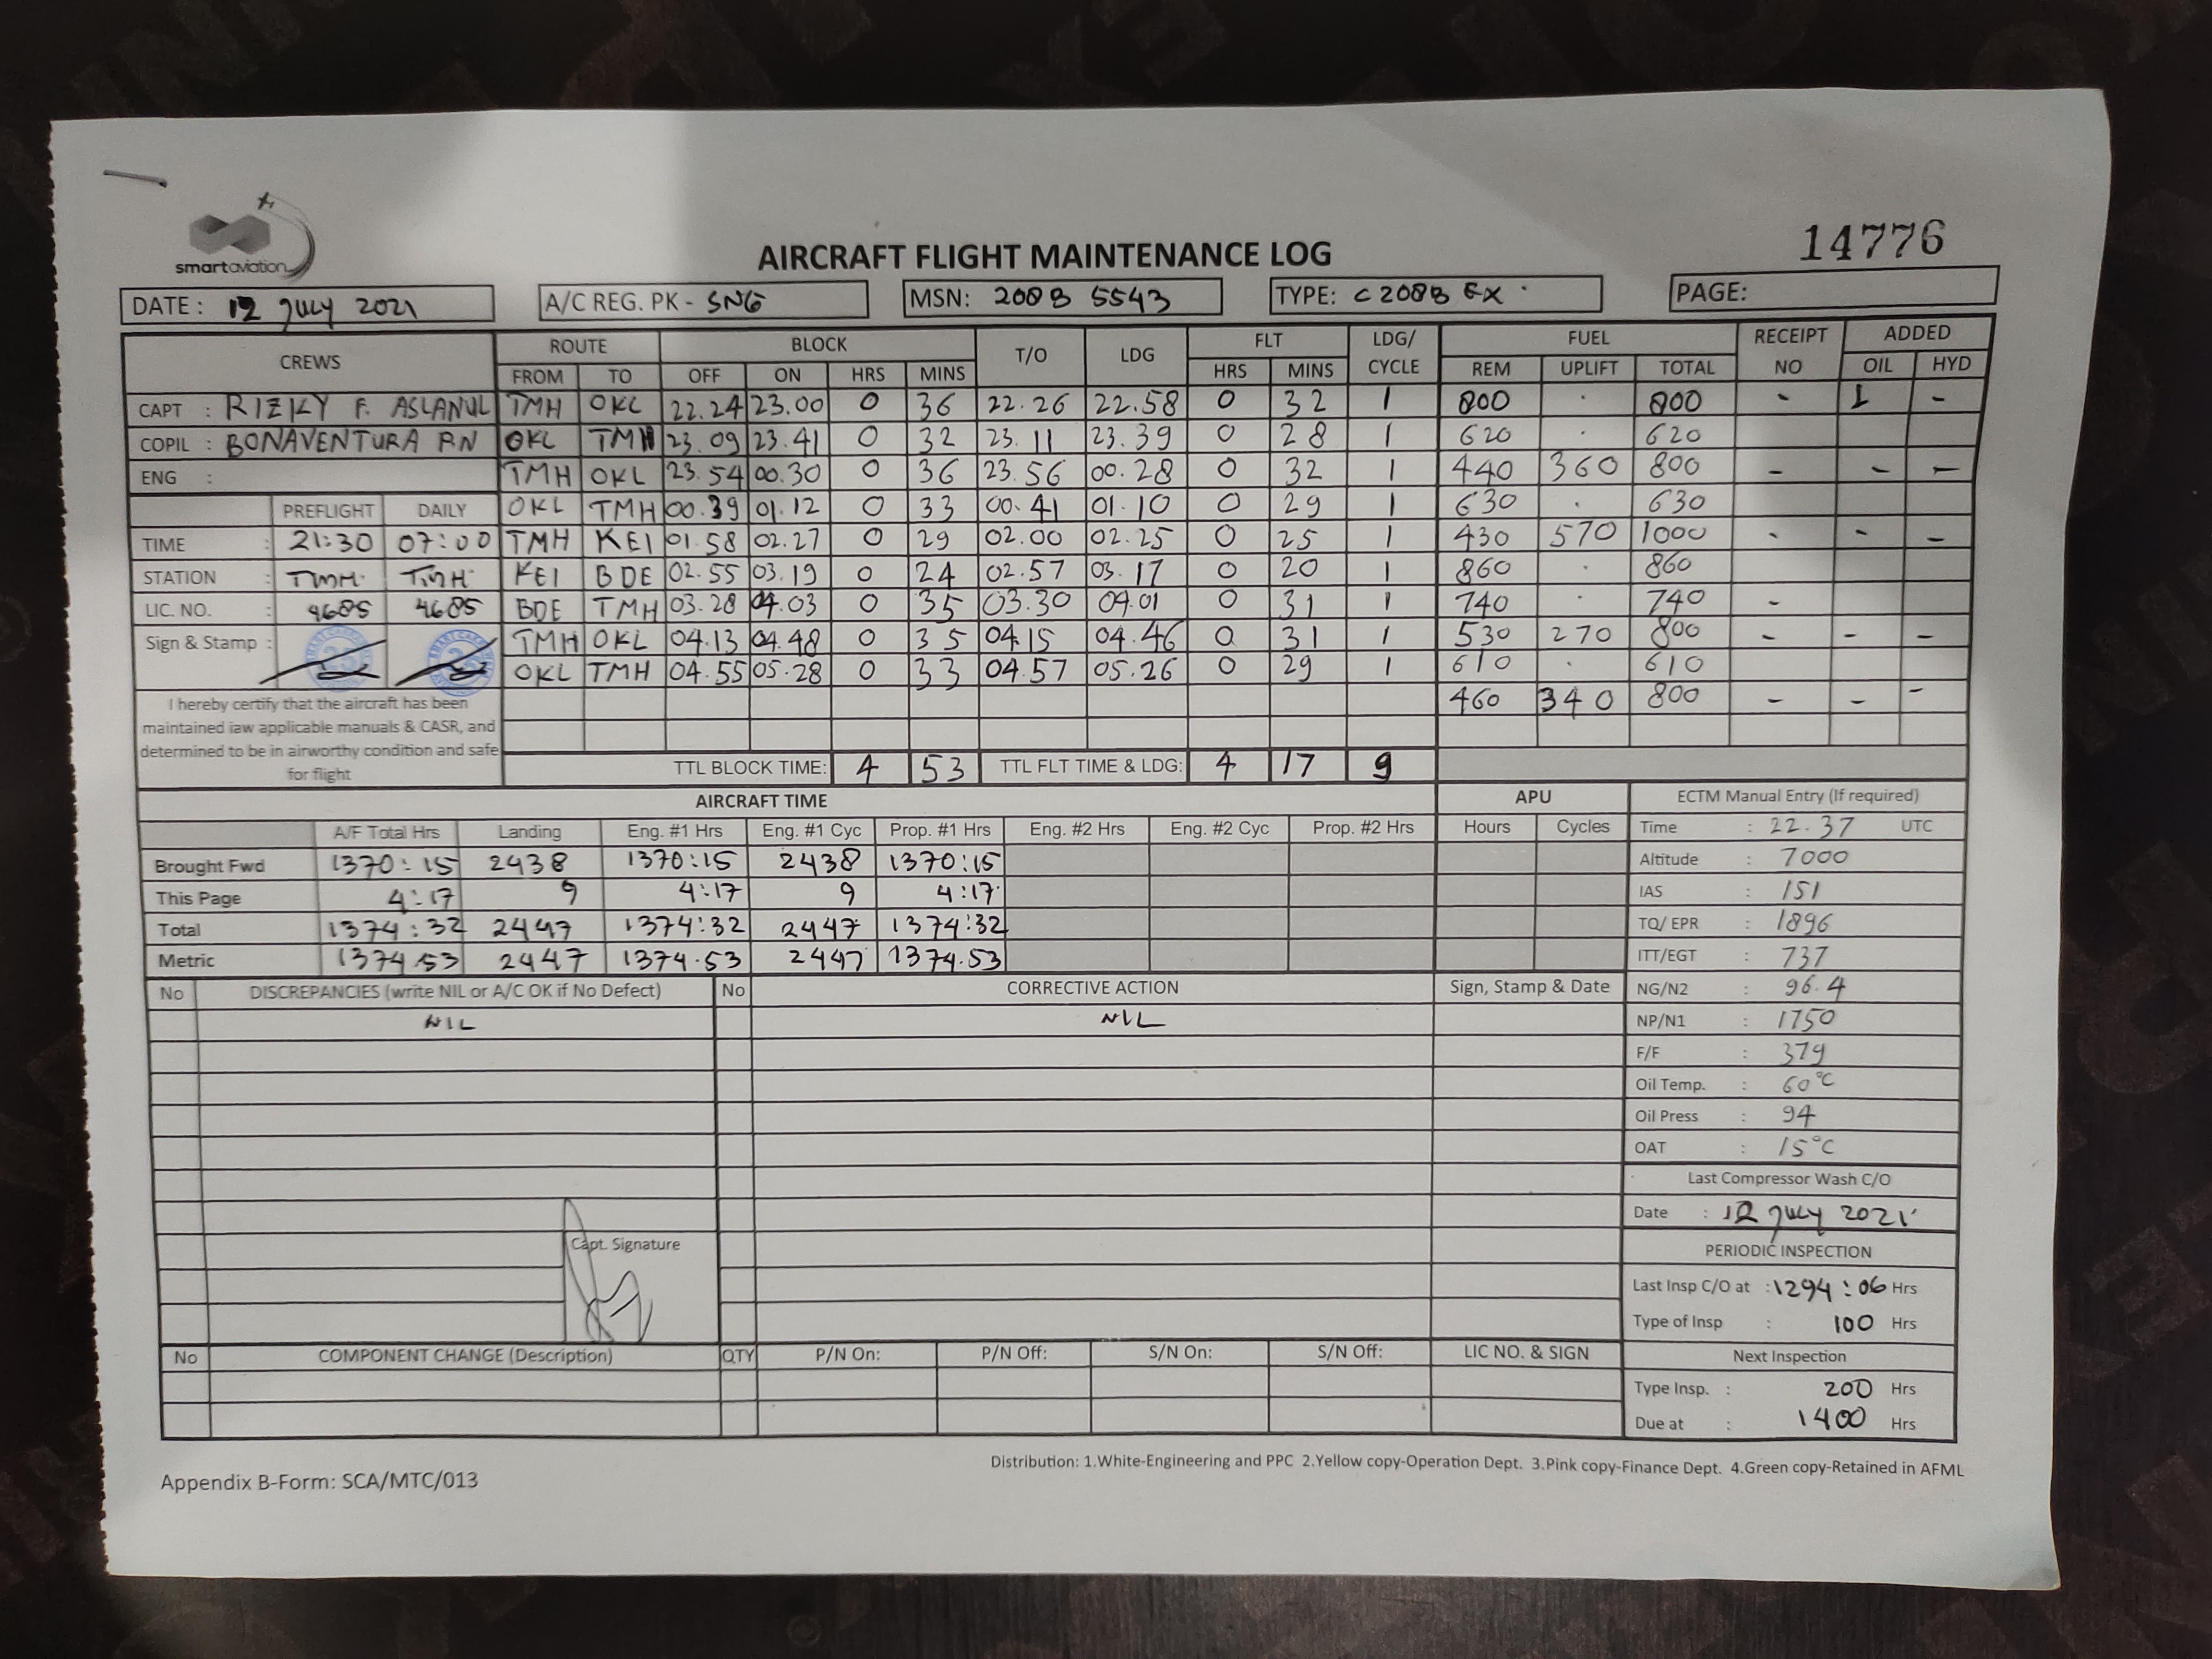 smart aviation
14776
AIRCRAFT FLIGHT MAINTENANCE LOG
DATE : 12 JULY 2021 A/C REG. PK - SNG MSN: 208B 5543 TYPE: C 208B EX PAGE:
CREWS ROUTE BLOCK T/O LDG FLT LDG/ CYCLE FUEL RECEIPT NO ADDED
FROM TO OFF ON HRS MINS HRS MINS REM UPLIFT TOTAL OIL HYD
CAPT : RIZKY F. ASLANUL TMH OKL 22.24 23.00 0 36 22.26 22.58 0 32 1 800 · 800 - 1 -
COPIL : BONAVENTURA RN OKL TMH 23.09 23.41 0 32 23.11 23.39 0 28 1 620 · 620
ENG : TMH OKL 23.54 00.30 0 36 23.56 00.28 0 32 1 440 360 800 - - -
PREFLIGHT DAILY OKL TMH 00.39 01.12 0 33 00.41 01.10 0 29 1 630 · 630
TIME : 21:30 07:00 TMH KEI 01.58 02.27 0 29 02.00 02.25 0 25 1 430 570 1000 - - -
STATION : TMH TMH KEI BDE 02.55 03.19 0 24 02.57 03.17 0 20 1 860 · 860
LIC. NO. : 4685 4685 BDE TMH 03.28 04.03 0 35 03.30 04.01 0 31 1 740 · 740 -
Sign & Stamp : TMH OKL 04.13 04.48 0 35 04.15 04.46 0 31 1 530 270 800 - - -
OKL TMH 04.55 05.28 0 33 04.57 05.26 0 29 1 610 · 610
460 340 800 - - -
I hereby certify that the aircraft has been
maintained iaw applicable manuals & CASR, and
determined to be in airworthy condition and safe
for flight
TTL BLOCK TIME: 4 53 TTL FLT TIME & LDG: 4 17 9
AIRCRAFT TIME APU ECTM Manual Entry (If required)
A/F Total Hrs Landing Eng. #1 Hrs Eng. #1 Cyc Prop. #1 Hrs Eng. #2 Hrs Eng. #2 Cyc Prop. #2 Hrs Hours Cycles Time : 22.37 UTC
Brought Fwd 1370:15 2438 1370:15 2438 1370:15 Altitude : 7000
This Page 4:17 9 4:17 9 4:17 IAS : 151
Total 1374:32 2447 1374:32 2447 1374:32 TQ/ EPR : 1896
Metric 1374.53 2447 1374.53 2447 1374.53 ITT/EGT : 737
No DISCREPANCIES (write NIL or A/C OK if No Defect) No CORRECTIVE ACTION Sign, Stamp & Date NG/N2 : 96.4
NIL NIL NP/N1 : 1750
F/F : 379
Oil Temp. : 60°C
Oil Press : 94
OAT : 15°C
Last Compressor Wash C/O
Date : 12 JULY 2021
Capt. Signature
PERIODIC INSPECTION
Last Insp C/O at : 1294:06 Hrs
Type of Insp : 100 Hrs
No COMPONENT CHANGE (Description) QTY P/N On: P/N Off: S/N On: S/N Off: LIC NO. & SIGN Next Inspection
Type Insp. : 200 Hrs
Due at : 1400 Hrs
Distribution: 1.White-Engineering and PPC 2.Yellow copy-Operation Dept. 3.Pink copy-Finance Dept. 4.Green copy-Retained in AFML
Appendix B-Form: SCA/MTC/013